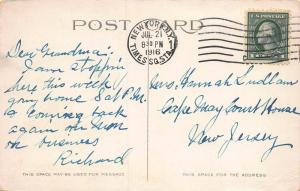 POST CARD
NEW YORK, N.Y.
JUL 21
830 PM
1916
TIMES SQ. STA.
1
Dear Grandma:
I am stoppin
here this week
going home Sat P.M.
& coming back
again on Mon
on business
Richard
Mrs. Hannah Ludlam
Cape May Court House
New Jersey
THIS SPACE MAY BE USED FOR MESSAGE
THIS SPACE FOR THE ADDRESS